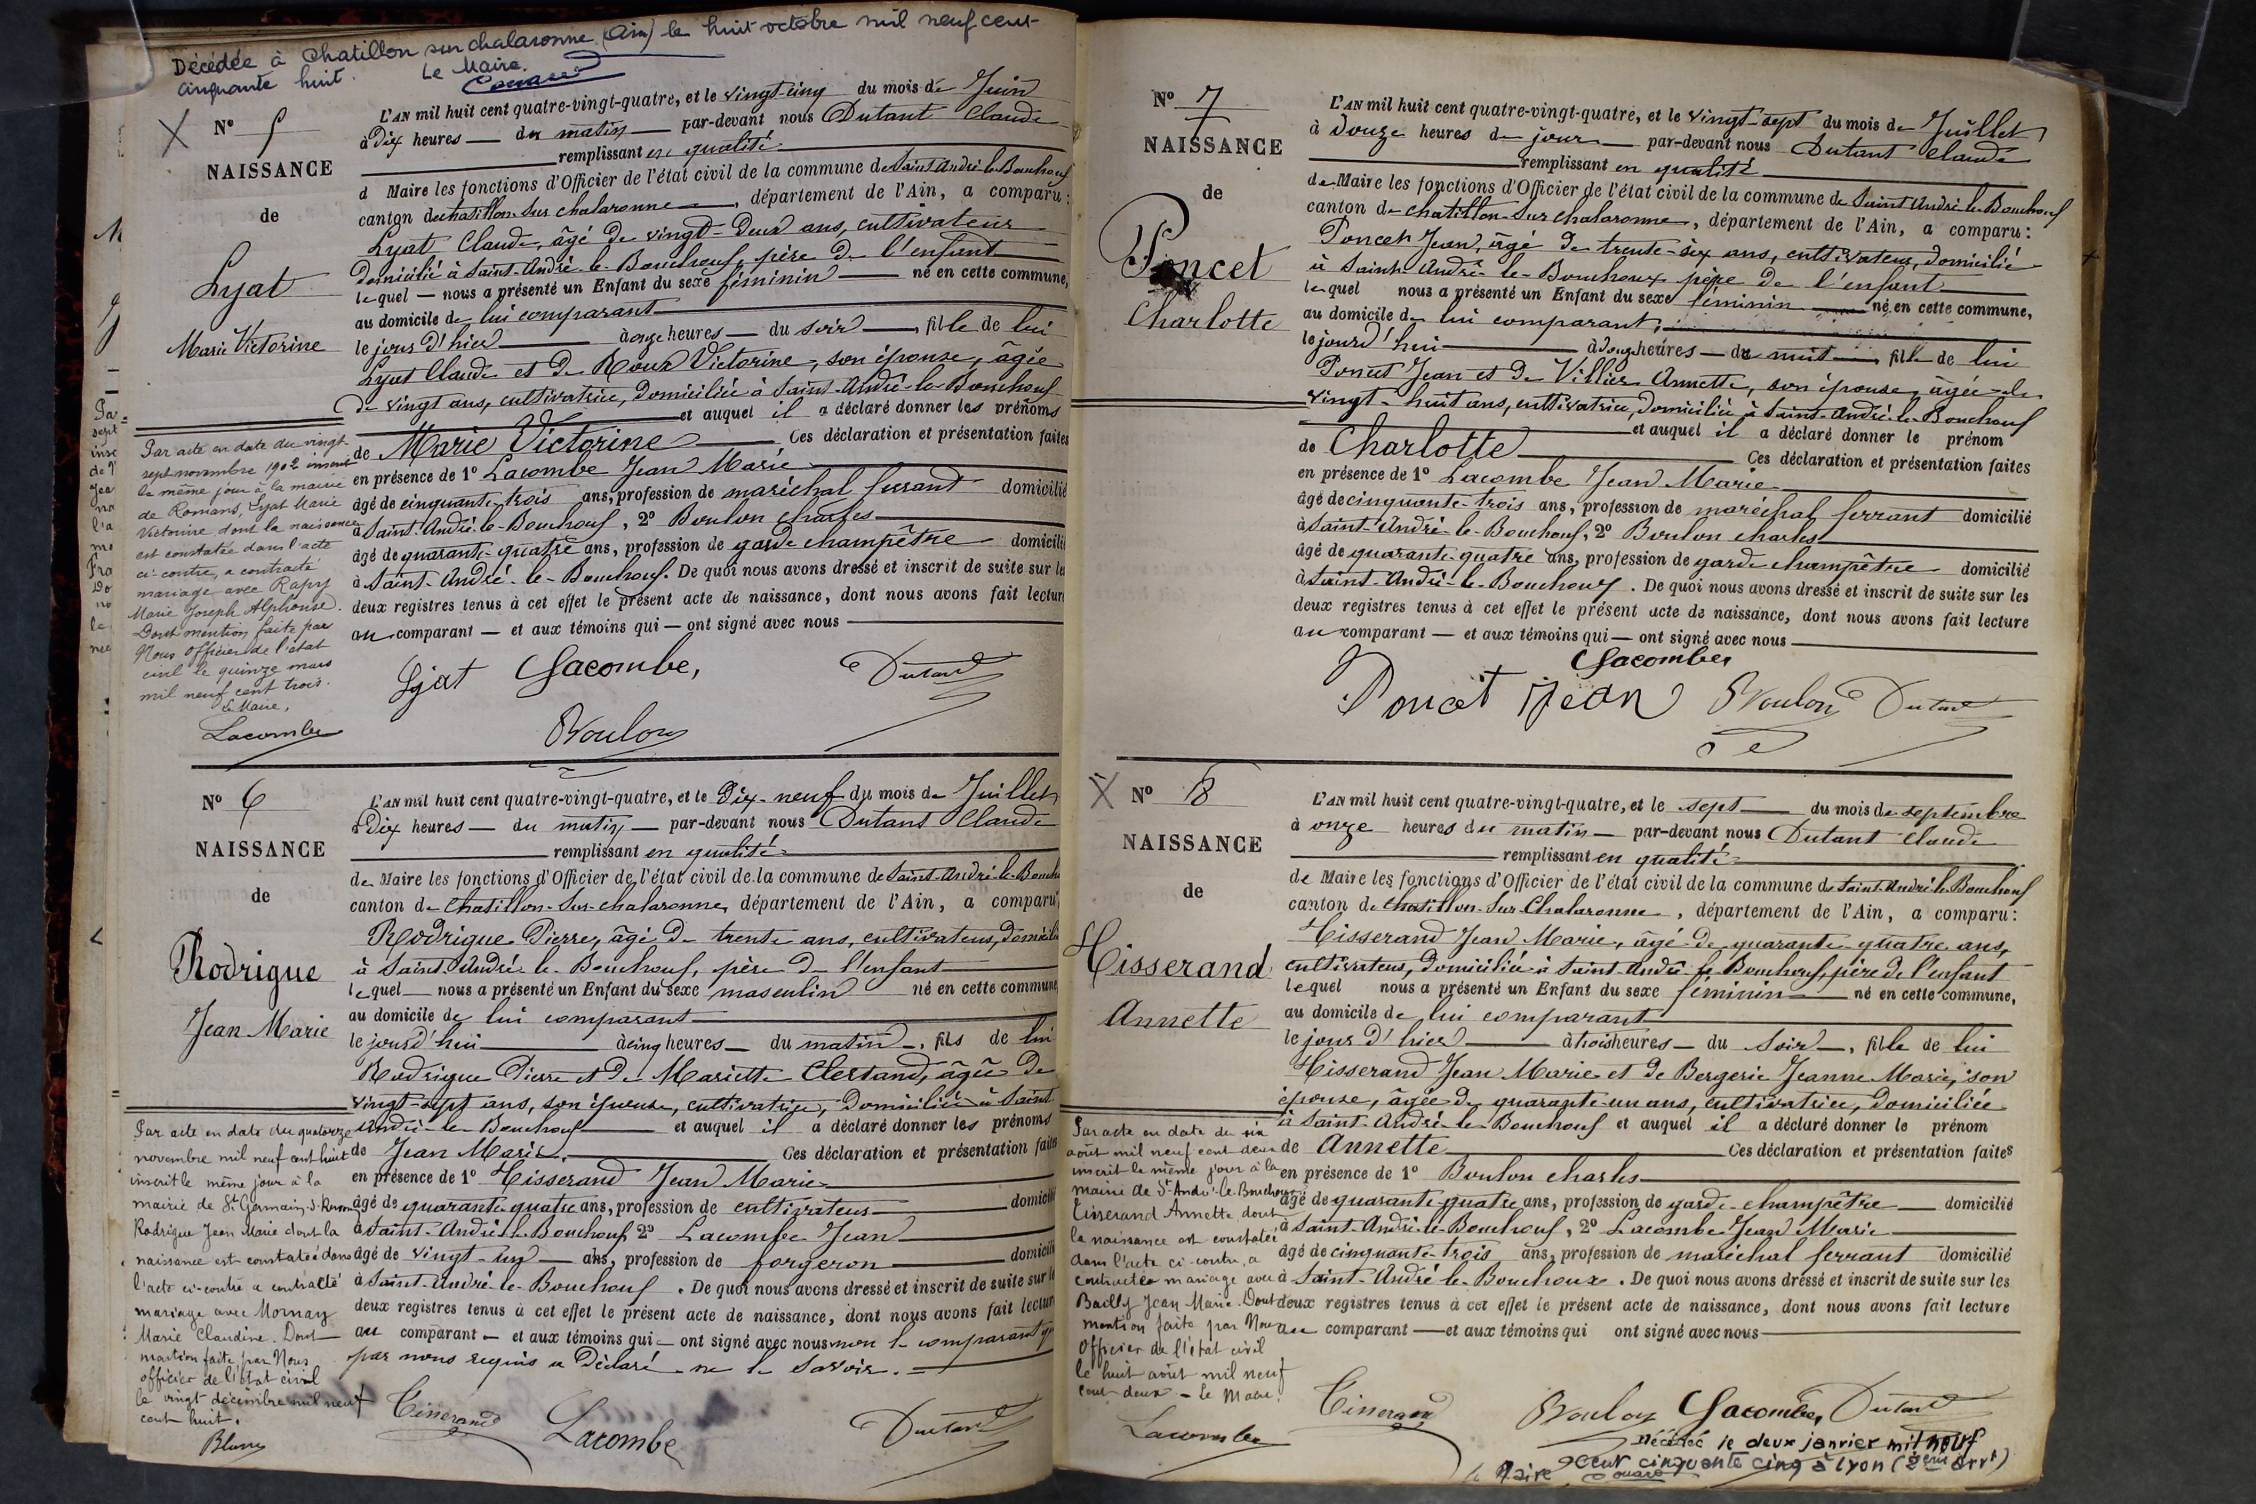 Décédée à Chatillon sur chalaronne (Ain) le huit octobre mil neuf cent
cinquante huit. Le Maire.
N° 5
NAISSANCE
de
Lyat
Marie Victorine
L'AN mil huit cent quatre-vingt-quatre, et le vingt-cinq du mois de Juin
à Dix heures — du matin — par-devant nous Dutant Claude
remplissant en qualité
d Maire les fonctions d'Officier de l'état civil de la commune de Saint André-le-Bouchoux
canton de chatillon-sur chalaronne, département de l'Ain, a comparu :
Lyat Claude, âgé de vingt-deux ans, cultivateur
domicilié à Saint-André-le-Bouchoux, père de l'enfant
lequel — nous a présenté un Enfant du sexe féminin — né en cette commune,
au domicile de lui comparant
le jour d'hier à onze heures — du soir —, fille de lui
Lyat Claude et de Roux Victorine, son épouse, âgée
de vingt ans, cultivatrice, domiciliée à Saint-André-le-Bouchoux
et auquel il a déclaré donner les prénoms
de Marie Victorine Ces déclaration et présentation faites
en présence de 1° Lacombe Jean Marie
âgé de cinquante-trois ans, profession de maréchal ferrant domicilié
à Saint-André-le-Bouchoux, 2° Boulon charles
âgé de quarante-quatre ans, profession de garde champêtre domicilié
à Saint-André-le-Bouchoux. De quoi nous avons dressé et inscrit de suite sur les
deux registres tenus à cet effet le présent acte de naissance, dont nous avons fait lecture
au comparant — et aux témoins qui — ont signé avec nous
Lyat Lacombe, Dutant
Boulon
Par acte en date du vingt
sept novembre 1902 inscrit
le même jour à la mairie
de Romans, Lyat Marie
Victorine dont la naissance
est constatée dans l'acte
ci-contre, a contracté
mariage avec Rapy
Marie Joseph Alphonse.
Dont mention faite par
Nous officier de l'état
civil le quinze mars
mil neuf cent trois.
Le Maire,
Lacombe
N° 6
NAISSANCE
de
Rodrigue
Jean Marie
L'AN mil huit cent quatre-vingt-quatre, et le Dix-neuf du mois de Juillet
à Dix heures — du matin — par-devant nous Dutant Claude
remplissant en qualité
de Maire les fonctions d'Officier de l'état civil de la commune de Saint-André-le-Bouchoux
canton de Chatillon-Sur-chalaronne, département de l'Ain, a comparu
Rodrigue Pierre, âgé de trente ans, cultivateur, domicilié
à Saint-André-le-Bouchoux, père de l'enfant
lequel — nous a présenté un Enfant du sexe masculin né en cette commune,
au domicile de lui comparant
le jourd'hui à cinq heures — du matin —, fils de lui
Rodrigue Pierre et de Mariette Clertand, âgée de
vingt-sept ans, son épouse, cultivatrice, domiciliée à Saint
André-le-Bouchoux et auquel il a déclaré donner les prénoms
de Jean Marie. Ces déclaration et présentation faites
en présence de 1° Tisserand Jean Marie
âgé de quarante-quatre ans, profession de cultivateur domicilié
à Saint-André-le-Bouchoux 2° Lacombe Jean
âgé de vingt-un — ans, profession de forgeron domicilié
à Saint-André-le-Bouchoux. De quoi nous avons dressé et inscrit de suite sur les
deux registres tenus à cet effet le présent acte de naissance, dont nous avons fait lecture
au comparant — et aux témoins qui — ont signé avec nous non le comparant qui
par nous requis a déclaré ne le savoir.
Tisserand Lacombe Dutant
Par acte en date du quatorze
novembre mil neuf cent huit
inscrit le même jour à la
mairie de St Germain-s-Renom
Rodrigue Jean Marie dont la
naissance est constatée dans
l'acte ci-contre a contracté
mariage avec Mornay
Marie Claudine. Dont
mention faite par Nous
officier de l'état civil
le vingt décembre mil neuf
cent huit.
N° 7
NAISSANCE
de
Poncet
Charlotte
L'AN mil huit cent quatre-vingt-quatre, et le vingt-sept du mois de Juillet
à douze heures de jour — par-devant nous Dutant Claude
remplissant en qualité
de Maire les fonctions d'Officier de l'état civil de la commune de Saint André-le-Bouchoux
canton de chatillon-sur chalaronne, département de l'Ain, a comparu :
Poncet Jean, âgé de trente-six ans, cultivateur, domicilié
à Saint-André-le-Bouchoux père de l'enfant
lequel nous a présenté un Enfant du sexe féminin né en cette commune,
au domicile de lui comparant,
le jourd'hui à douze heures — de nuit —, fille de lui
Poncet Jean et de Villier Annette, son épouse, âgée de
vingt-huit ans, cultivatrice, domiciliée à Saint-André-le-Bouchoux
et auquel il a déclaré donner le prénom
de Charlotte Ces déclaration et présentation faites
en présence de 1° Lacombe Jean Marie
âgé de cinquante-trois ans, profession de maréchal ferrant domicilié
à Saint-André-le-Bouchoux, 2° Boulon charles
âgé de quarante-quatre ans, profession de garde champêtre domicilié
à Saint-André-le-Bouchoux. De quoi nous avons dressé et inscrit de suite sur les
deux registres tenus à cet effet le présent acte de naissance, dont nous avons fait lecture
au comparant — et aux témoins qui — ont signé avec nous
Lacombe,
Poncet jean Boulon Dutant
N° 8
NAISSANCE
de
Tisserand
Annette
L'AN mil huit cent quatre-vingt-quatre, et le sept du mois de septembre
à onze heures du matin — par-devant nous Dutant Claude
remplissant en qualité
de Maire les fonctions d'Officier de l'état civil de la commune de Saint-André-le-Bouchoux
canton de chatillon-Sur-Chalaronne, département de l'Ain, a comparu :
Tisserand Jean Marie, âgé de quarante-quatre ans,
cultivateur, domicilié à Saint-André-le-Bouchoux, père de l'enfant
lequel nous a présenté un Enfant du sexe féminin né en cette commune,
au domicile de lui comparant
le jour d'hier à trois heures — du soir —, fille de lui
Tisserand Jean Marie et de Bergerie Jeanne Marie, son
épouse, âgée de quarante-un ans, cultivatrice, domiciliée
à Saint-André-le-Bouchoux et auquel il a déclaré donner le prénom
de Annette Ces déclaration et présentation faites
en présence de 1° Boulon charles
âgé de quarante-quatre ans, profession de garde-champêtre domicilié
à Saint-André-le-Bouchoux, 2° Lacombe Jean Marie
âgé de cinquante-trois ans, profession de maréchal ferrant domicilié
à Saint-André-le-Bouchoux. De quoi nous avons dressé et inscrit de suite sur les
deux registres tenus à cet effet le présent acte de naissance, dont nous avons fait lecture
au comparant — et aux témoins qui ont signé avec nous
Tisserand Boulon Lacombe, Dutant
Par acte en date du six
août mil neuf cent deux
inscrit le même jour à la
mairie de St-André-le-Bouchoux
Tisserand Annette dont
la naissance est constatée
dans l'acte ci-contre, a
contracté mariage avec
Bailly Jean Marie. Dont
mention faite par Nous
officier de l'état civil
le huit août mil neuf
cent deux — Le Maire
Lacombe
Décédée le deux janvier mil neuf
cent cinquante cinq à Lyon (2ème Arrt)
Le Maire